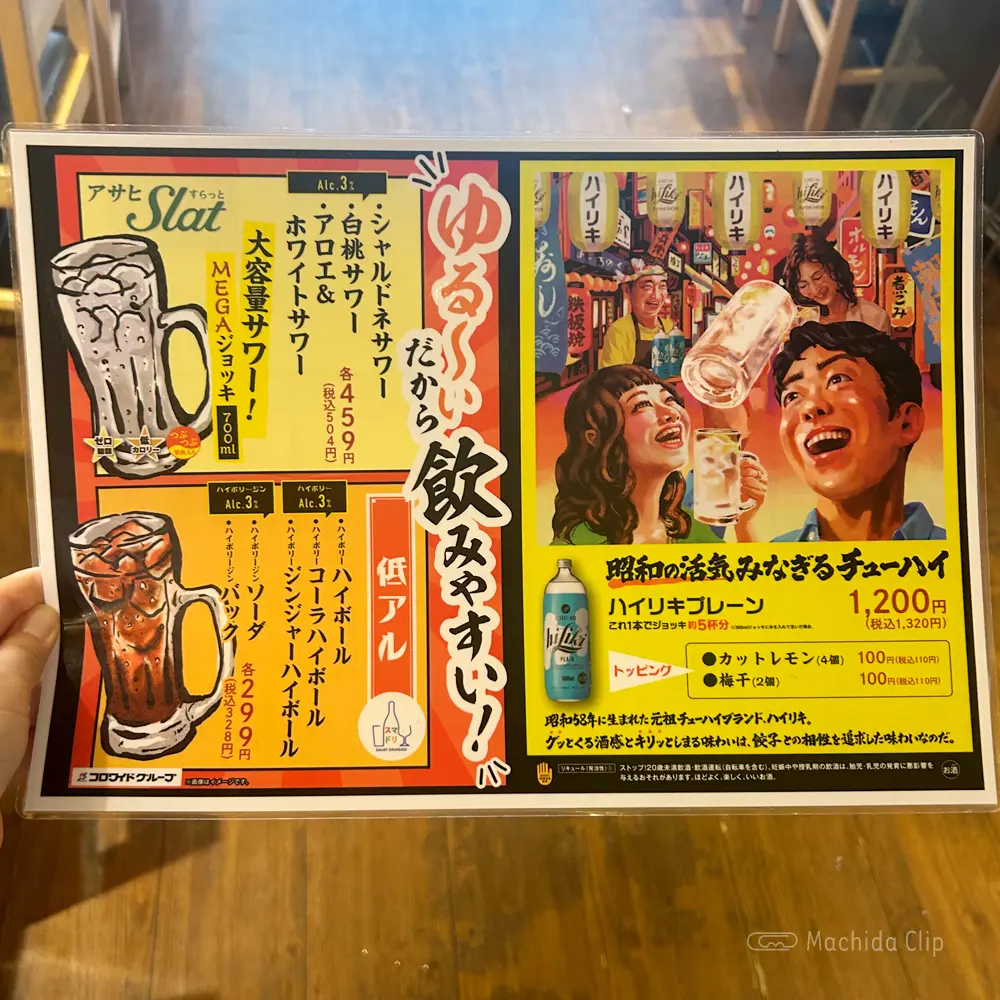 ゆる〜いだから飲みやすい!
アサヒSlatすらっと
Alc.3%
・シャルドネサワー
・白桃サワー
・アロエ&
ホワイトサワー
各459円
(税込504円)
大容量サワー!
MEGAジョッキ
700ml
ゼロ
糖類
低
カロリー
つぶつぶ
低アル
スマドリ
SMART DRINKING
ハイボリー
Alc.3%
・ハイボリー ハイボール
・ハイボリー コーラハイボール
・ハイボリー ジンジャーハイボール
ハイボリージン
Alc.3%
・ハイボリージン ソーダ
・ハイボリージン バック
各299円
(税込328円)
コロワイドグループ
※画像はイメージです。
ハイリキ
hiLiki
ハイリキ
hiLiki
ハイリキ
鉄板焼
ホルモン
煮こみ
昭和の活気みなぎるチューハイ
ハイリキプレーン
1,200円
(税込1,320円)
これ1本でジョッキ約5杯分
hiLiki
PLAIN
トッピング
●カットレモン(4個) 100円(税込110円)
●梅干(2個) 100円(税込110円)
昭和58年に生まれた元祖チューハイブランド、ハイリキ。
グッとくる酒感とキリッとしまる味わいは、餃子との相性を追求した味わいなのだ。
リキュール(発泡性)①
ストップ!20歳未満飲酒・飲酒運転(自転車を含む)。妊娠中や授乳期の飲酒は、胎児・乳児の発育に悪影響を
与えるおそれがあります。ほどよく、楽しく、いいお酒。
お酒
Machida Clip